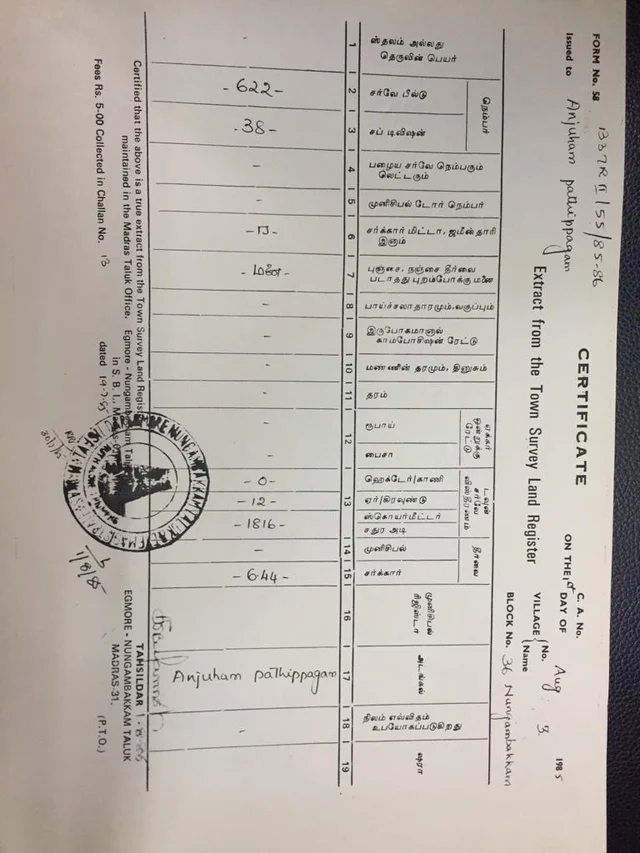 FORM No. 58
1337RII/55/85-86
CERTIFICATE
C. A. No.
Issued to Anjuham pathippagam
ON THE 1st DAY OF Aug 1985
Extract from the Town Survey Land Register
VILLAGE { No. 3
Name
BLOCK No. 36 Nungambakkam
1 ஸ்தலம் அல்லது தெருவின் பெயர் -
நெம்பர்
2 சர்வே பீல்டு - 622 -
3 சப் டிவிஷன் - 38 -
4 பழைய சர்வே நெம்பரும் லெட்டரும் -
5 முனிசிபல் டோர் நெம்பர் -
6 சர்க்கார் மிட்டா, ஜமீன்தாரி இனாம்
7 புஞ்சை, நஞ்சை தீர்வை படாதது புறம்போக்கு மனை - மனை -
8 பாய்ச்சலாதாரமும், வகுப்பும் -
9 இருபோகமானால் காம்போசிஷன் ரேட்டு -
10 மண்ணின் தரமும், தினுசும் -
11 தரம் -
ஏக்கர் ஒன்றுக்கு ரேட்டு
12 ரூபாய் -
பைசா -
டவுன் சர்வே விஸ்தீரணம்
13 ஹெக்டேர்/காணி - 0 -
ஏர்/கிரவுண்டு - 12 -
ஸ்கொயர்மீட்டர் சதுர அடி - 1816 -
தீர்வை
14 முனிசிபல் -
15 சர்க்கார் - 644 -
16 முனிசிபல் ரிஜிஸ்டர்
17 அடங்கல் Anjuham pathippagam
18 நிலம் எவ்விதம் உபயோகப்படுகிறது -
19 ஷரா
Certified that the above is a true extract from the Town Survey Land Regist
maintained in the Madras Taluk Office. Egmore - Nungambakkam Tal
in S. B. I., M
Fees Rs. 5-00 Collected in Challan No. 13 dated 19-7-85
1/8/85
TAHSILDAR
EGMORE - NUNGAMBAKKAM TALUK
MADRAS-31.
(P.T.O.)